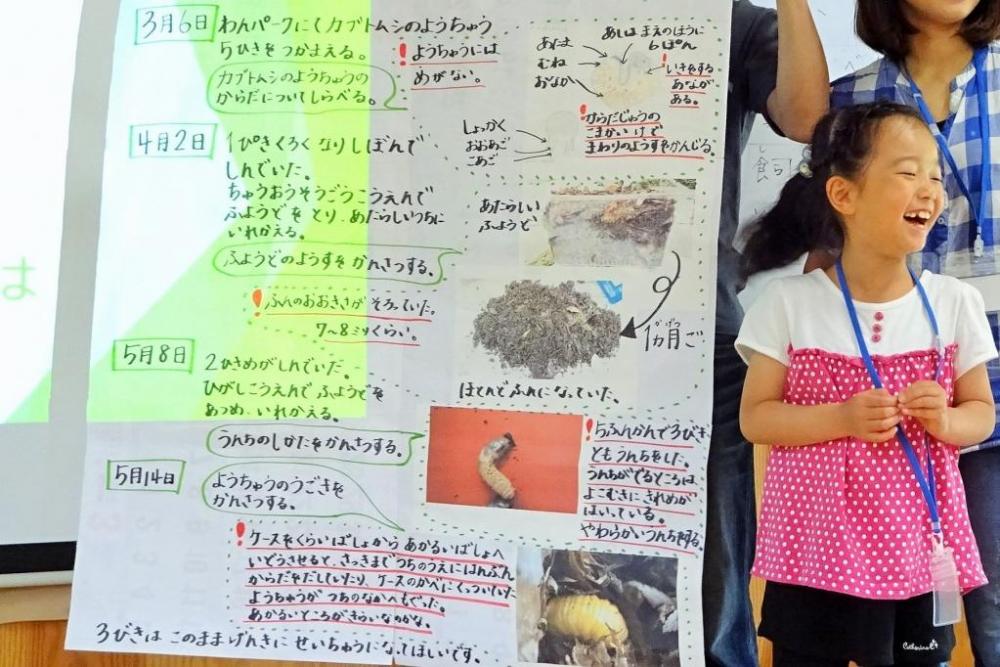 3月6日 わんパークにてカブトムシのようちゅう
5ひきをつかまえる。
カブトムシのようちゅうの
からだについてしらべる。
！ようちゅうには
めがない。
あたま
むね
おなか
あしは まえのほうに
6ぽん
！いきをする
あなが
ある。
4月2日 1ぴきくろくなりしぼんで
しんでいた。
ちゅうおうそうごうこうえんで
ふようどをとり、あたらしいつちに
いれかえる。
しょっかく
おおあご
こあご
！からだじゅうの
こまかいけで
まわりのようすをかんじる。
ふようどのようすをかんさつする。
！ふんのおおきさが そろっていた。
7〜8ミリくらい。
あたらしい
ふようど
1カ月ご
かげつ
ほとんどふんになっていた。
5月8日 2ひきめがしんでいた。
ひがしこうえんで ふようどを
あつめ、いれかえる。
うんちのしかたをかんさつする。
！5ふんかんで3びき
ともうんちをした。
うんちがでるところは、
よこむきにきれめが
はいっている。
やわらかいうんちをする。
5月14日 ようちゅうのうごきを
かんさつする。
！ケースをくらいばしょから あかるいばしょへ
いどうさせると、さっきまで つちのうえにはんぶん
からだをだしていたり、ケースのかべにくっついていた
ようちゅうが つちのなかへもぐった。
あかるいところがきらいなのかな。
3びきは このままげんきに せいちゅうになってほしいです。
は
し
飼